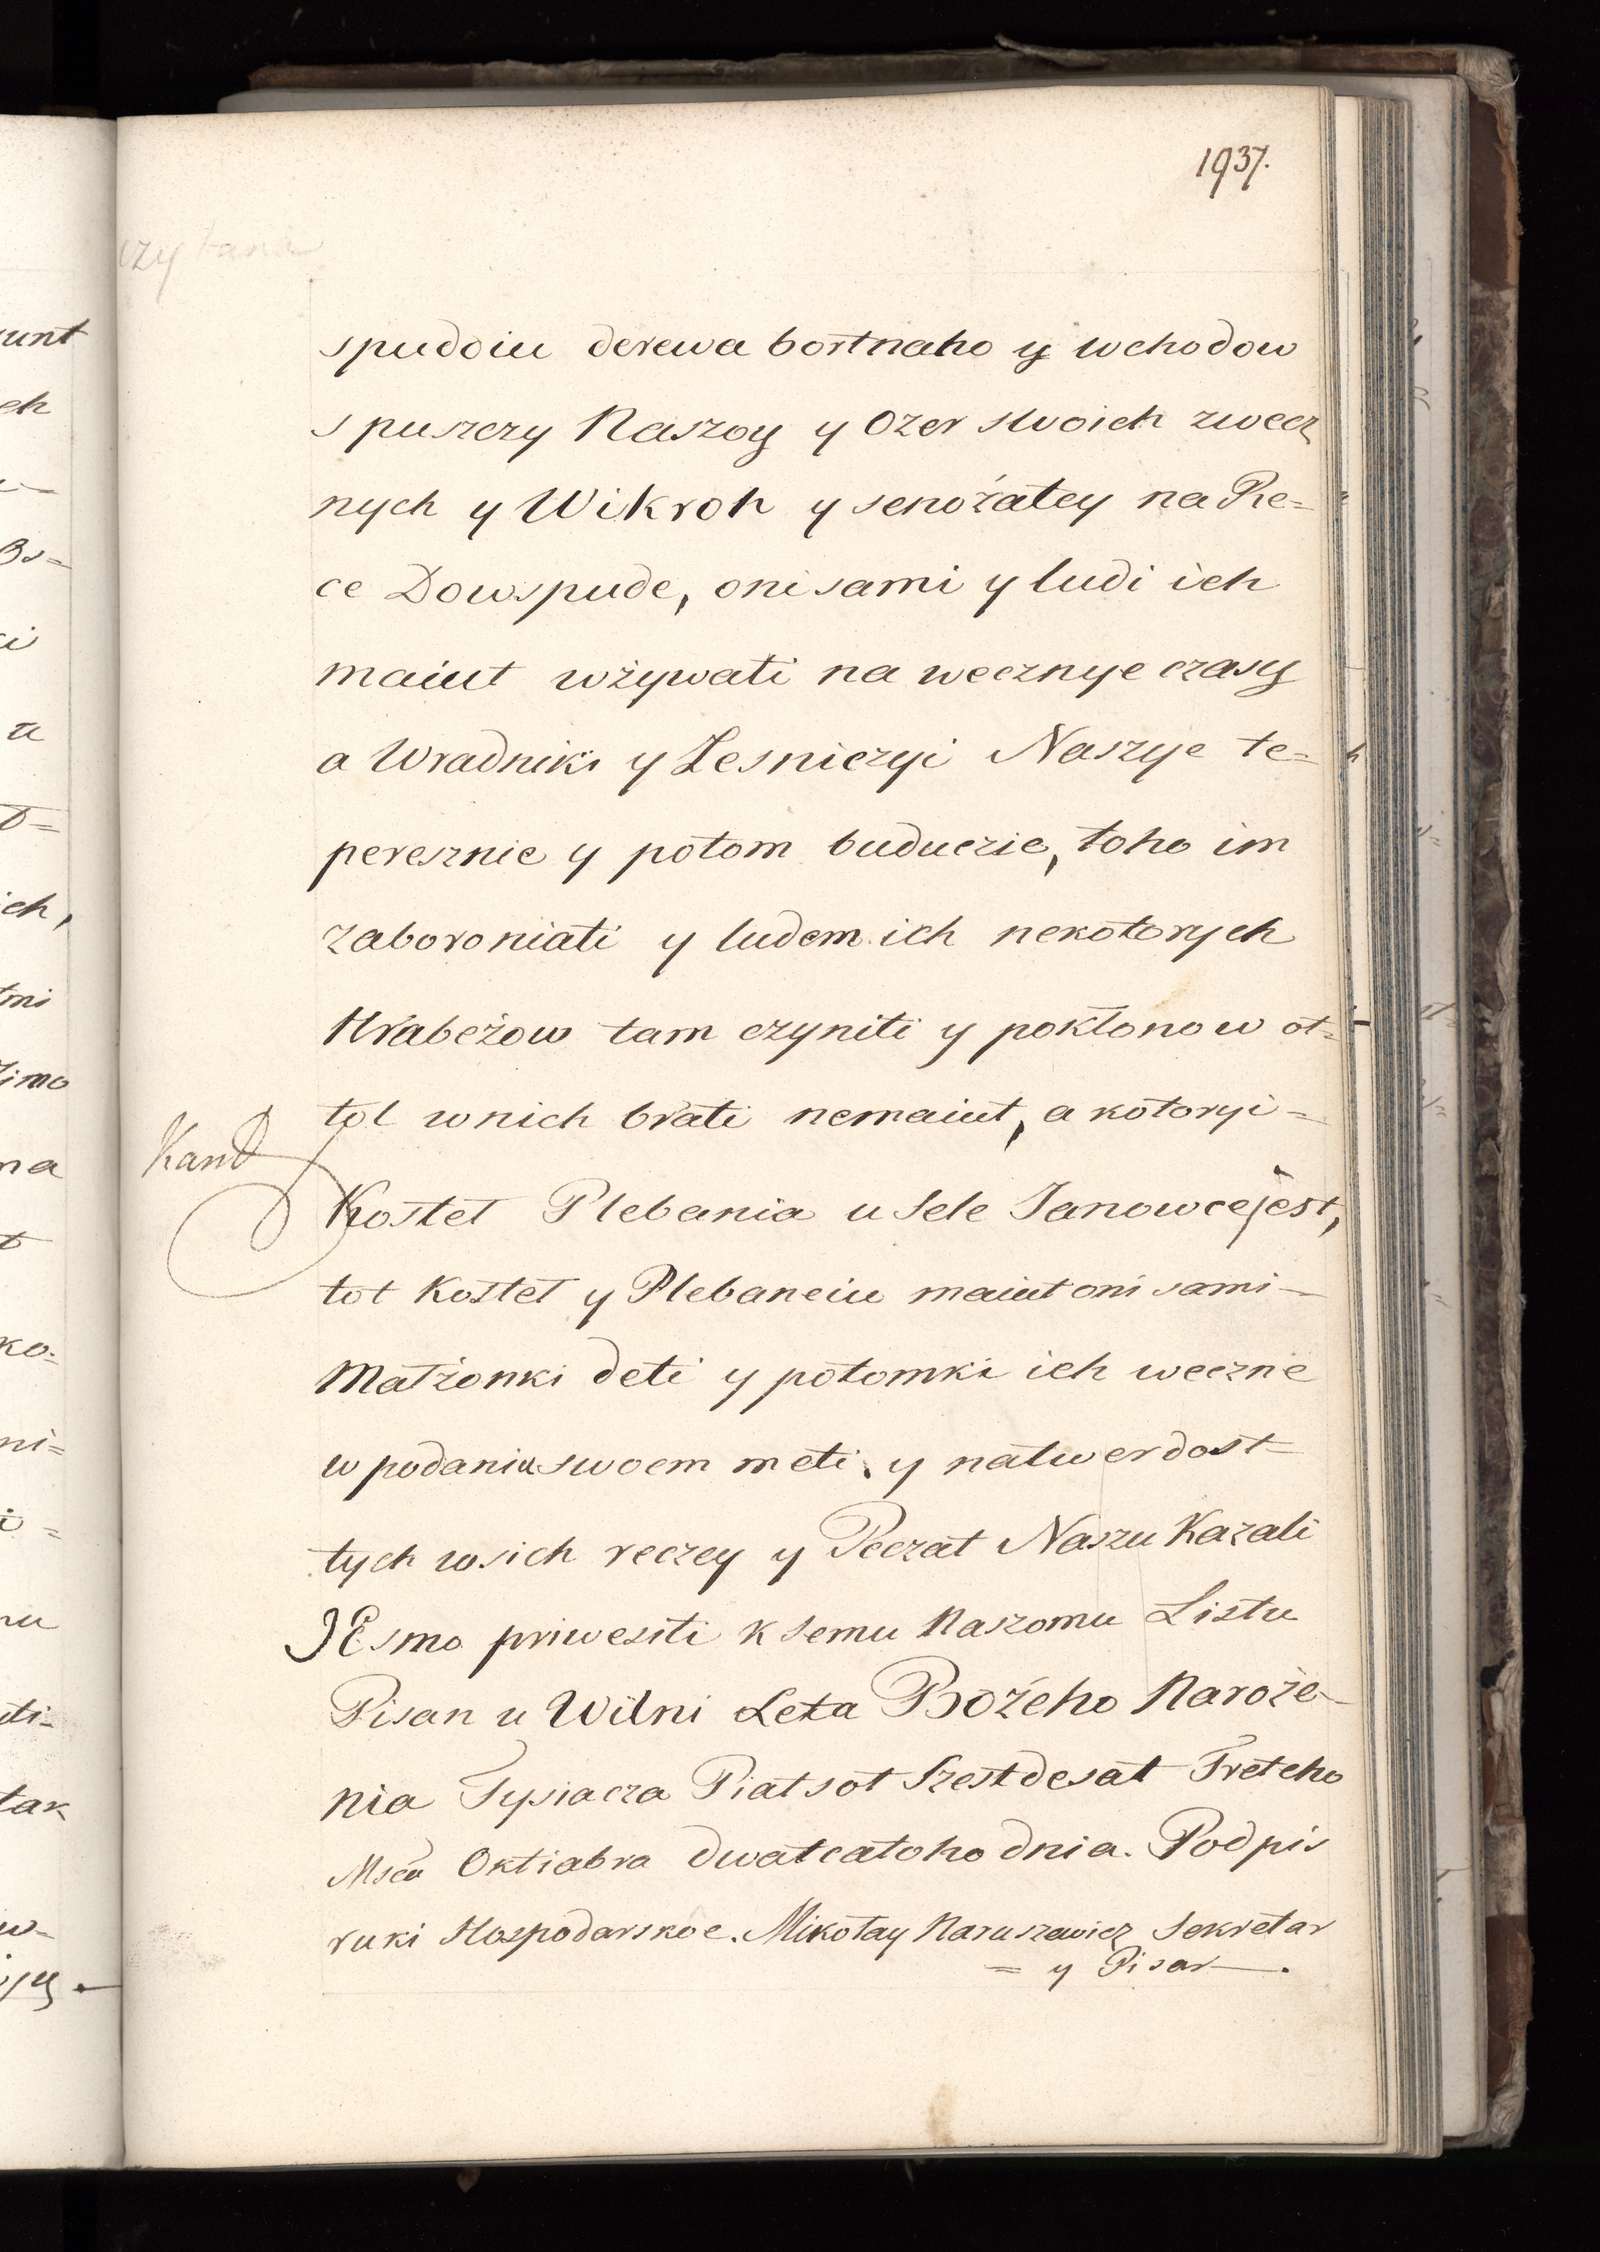 1937.
spudoiu derewa bortnaho y wchodow
s puszczy Naszoy y Ozer swoich zwecz
nych y Wikroh y senożatey na Re=
ce Dowspude, oni sami y ludi ich
maiut wżywati na wecznye czasy
a Wradniki y Lesniczyi Naszye te=
peresznie y potom buduczie, toho im
zaboroniati y ludem ich nekotorych
Hrabeżow tam czyniti y pokłonow ot=
tol w nich brati nemaiut, a kotoryi=
Kostel Plebania u Sele Janowce jest,
tot Kosteł y Plebaneiu maiut oni sami
Małżonki deti y potomki ich weczne
w podaniu swoem meti, y natwerdost
tych wsich reczey y Peczat Naszu Kazali
JEsmo priwesiti k semu Naszomu Listu
Pisan u Wilni Leta Bożeho Naroże-
nia Tysiacza Piatsot Szestdesat Treteho
Msca Oktiabra dwatcatoho dnia. Podpis
ruki Hospodarskoe. Mikołay Naruszewicz Sekretar
= y Pisar.